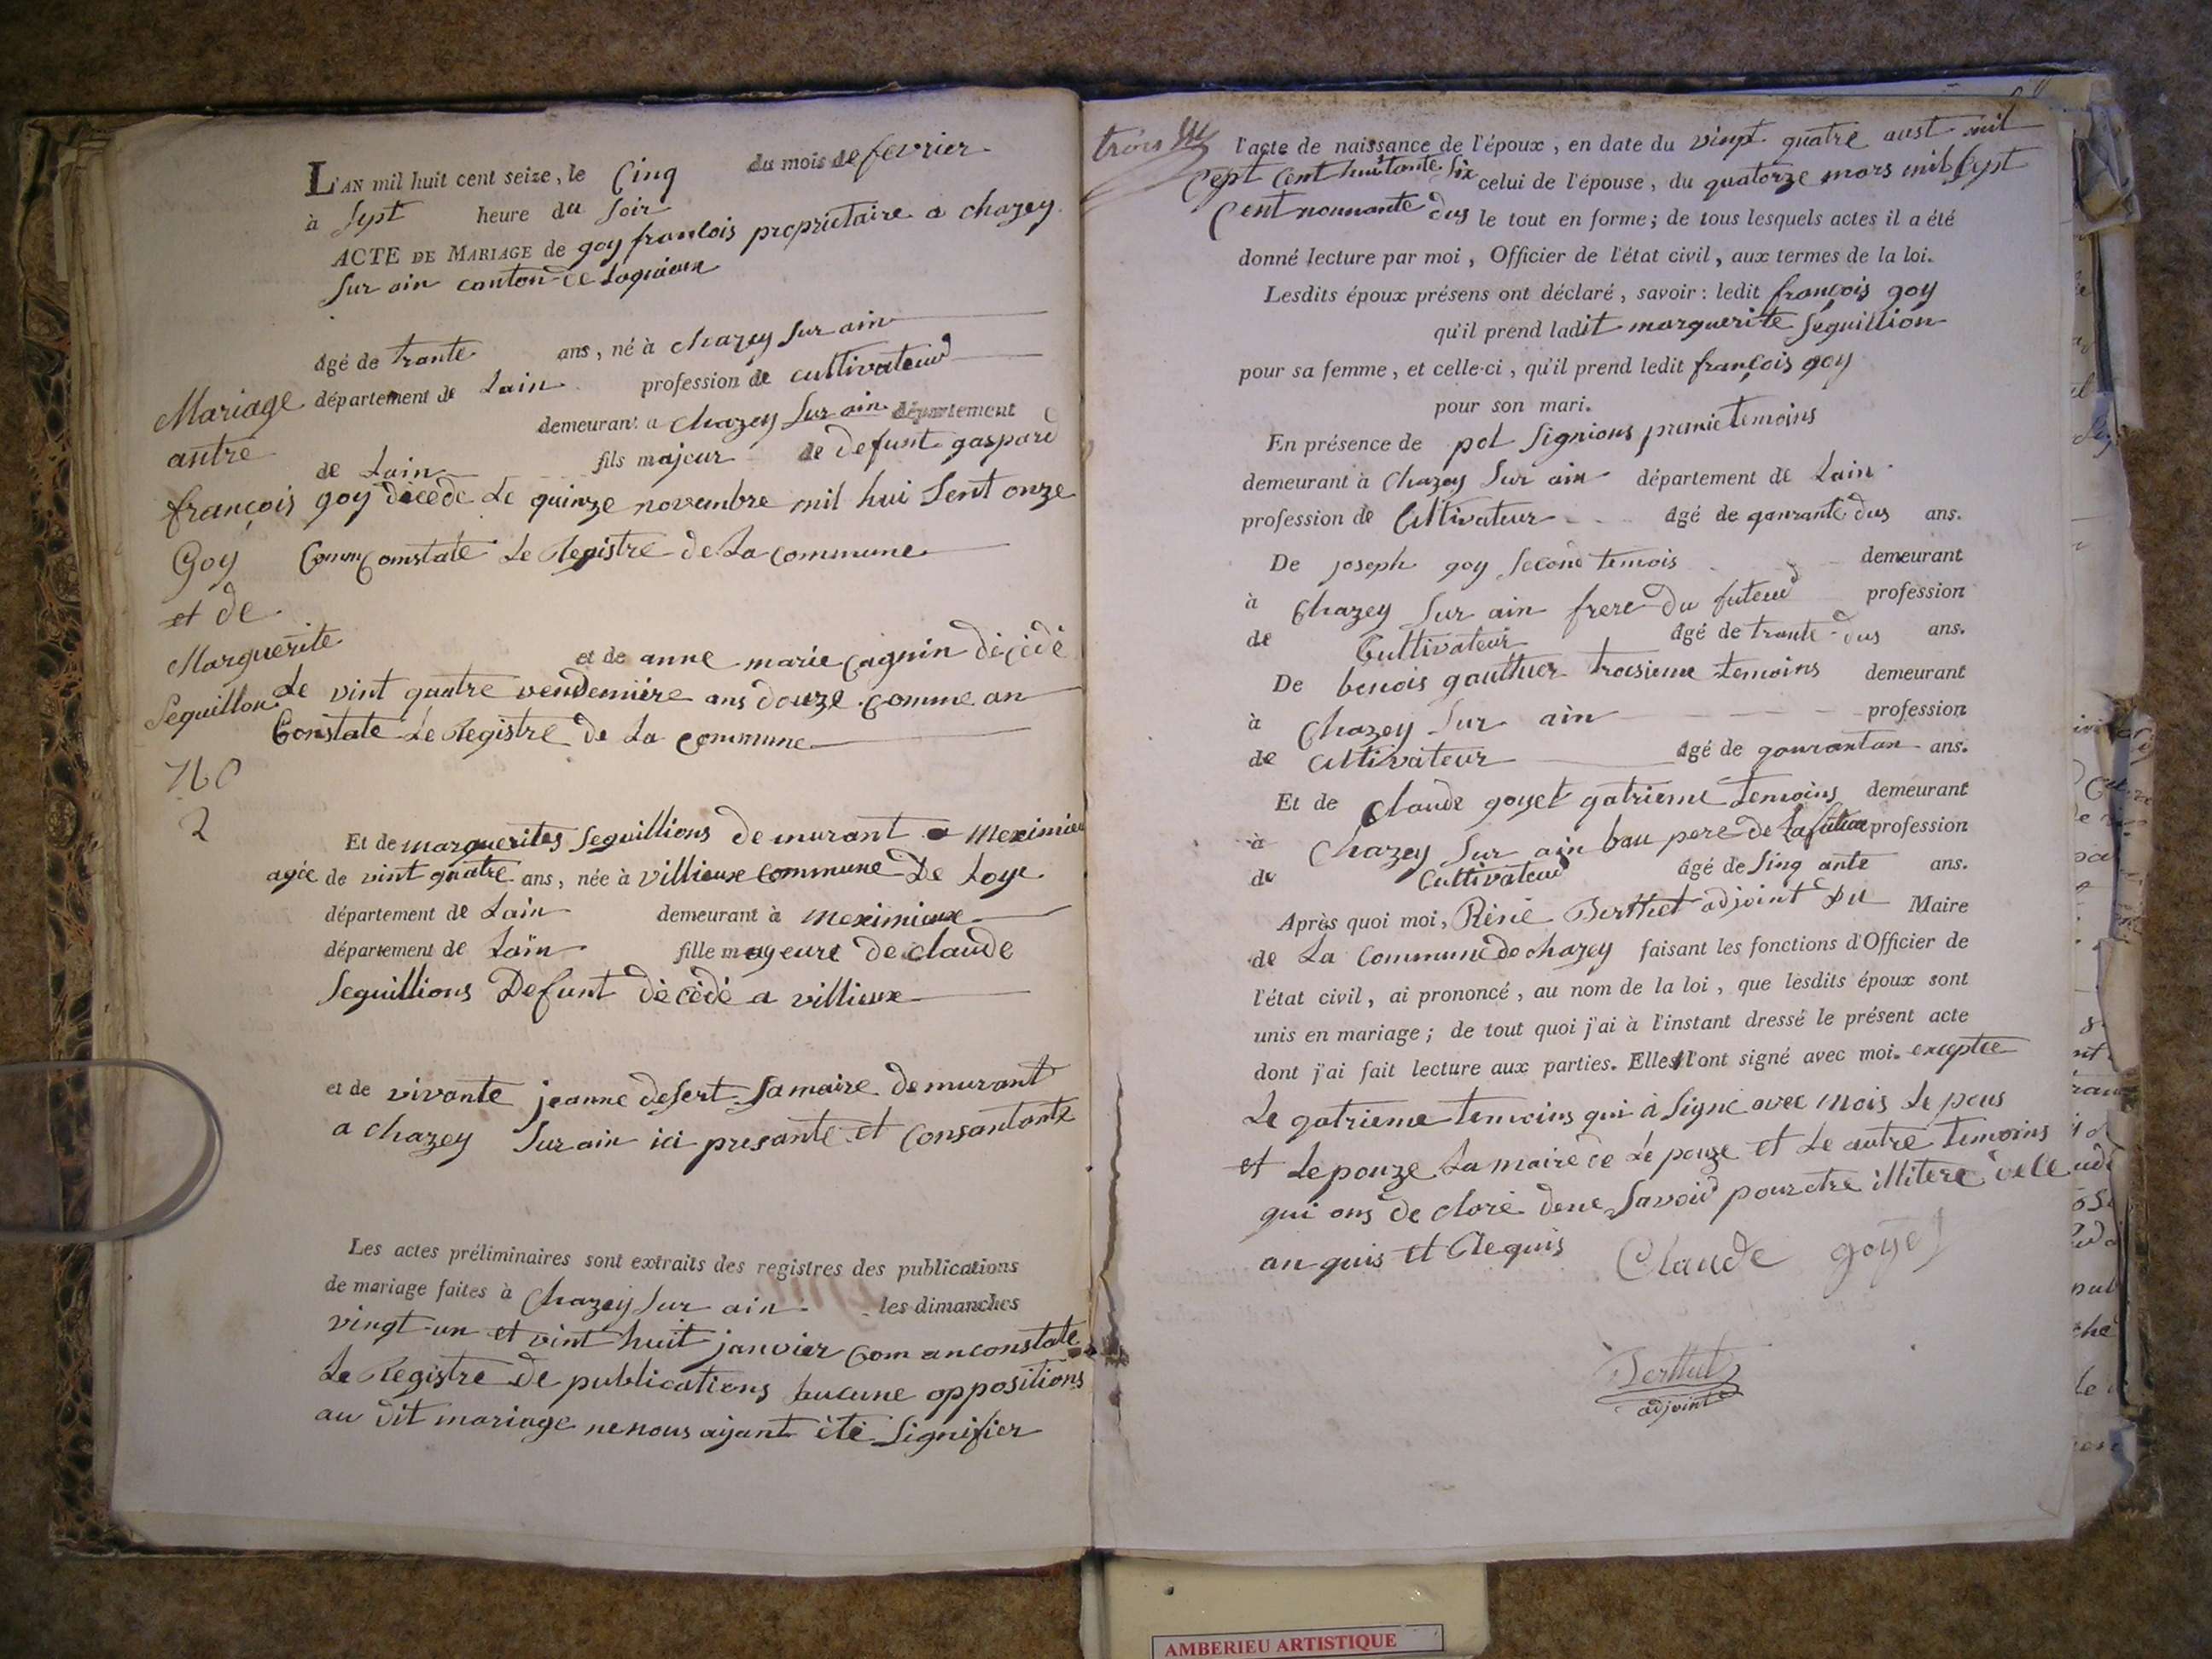 L'AN mil huit cent seize, le Cinq du mois de fevrier
à Sept heure du Soir
ACTE DE MARIAGE de goy francois proprietaire a chazey
Sur ain canton de Lagnieux
âgé de trante ans, né à chazey Sur ain
département de Lain profession de cultivateur
demeurant a chazey Sur ain département
de Lain fils majeur de defunt gaspard
goy décédé Le quinze novembre mil hui Sent onze
Comm Comstate Le Registre de La commune
et de anne marie cagnin décédé
Le vint quatre vendemiére ans douze comme an
Constate Le Registre de La commune
Mariage
antre
françois
Goy
et de
Marguerite
Seguillon
No
2
Et de marguerites Seguillions demurant a Meximieu
agée de vint quatre ans, née à villieux commune De Loye
département de Lain demeurant à Meximieux
département de Lain fille mageure de claude
Seguillions Defunt décédé a villieux
et de vivante jeanne desert Sa maire demurant
a chazey Sur ain ici presante et consantante
Les actes préliminaires sont extraits des registres des publications
de mariage faites à Chazey Sur ain les dimanches
vingt-un et vint huit janvier Com anconstate
Le Registre de publications aucune oppositions
au dit mariage ne nous ayant été Signifier
trois
l'acte de naissance de l'époux, en date du vingt quatre aust mil
Cept Cent huitante Six celui de l'épouse, du quatorze mars mil Sept
Cent nonnante dus le tout en forme; de tous lesquels actes il a été
donné lecture par moi, Officier de l'état civil, aux termes de la loi.
Lesdits époux présens ont déclaré, savoir: ledit françois goy
qu'il prend ladit marguerite Seguillion
pour sa femme, et celle-ci, qu'il prend ledit françois goy
pour son mari.
En présence de pol Signions premie temoins
demeurant à Chazey Sur ain département de Lain
profession de Cultivateur âgé de qauranté dus ans.
De joseph goy Second temois demeurant
à Chazey Sur ain frere du futeur profession
de Cultivateur âgé de trante dus ans.
De benois gauthier troisieme temoins demeurant
à Chazey Sur ain profession
de Cultivateur âgé de gourantan ans.
Et de Claude goyet gatrieme temoins demeurant
à Chazey Sur ain bau pere de La future profession
de Cultivateur âgé de Sinq ante ans.
Après quoi moi, Réné Berthet adjoint Du Maire
de La Commune de chazey faisant les fonctions d'Officier de
l'état civil, ai prononcé, au nom de la loi, que lesdits époux sont
unis en mariage; de tout quoi j'ai à l'instant dressé le présent acte
dont j'ai fait lecture aux parties. Elles l'ont signé avec moi. exceptee
Le gatrieme temoins qui à Signé avec mois Le pous
et Lepouze La maire de Le pouze et Le autre temoins
qui ons de cloré dene Savoir pour etre illiteré dele
an quis et Requis Claude goyet
Berthet
adjoint
AMBERIEU ARTISTIQUE